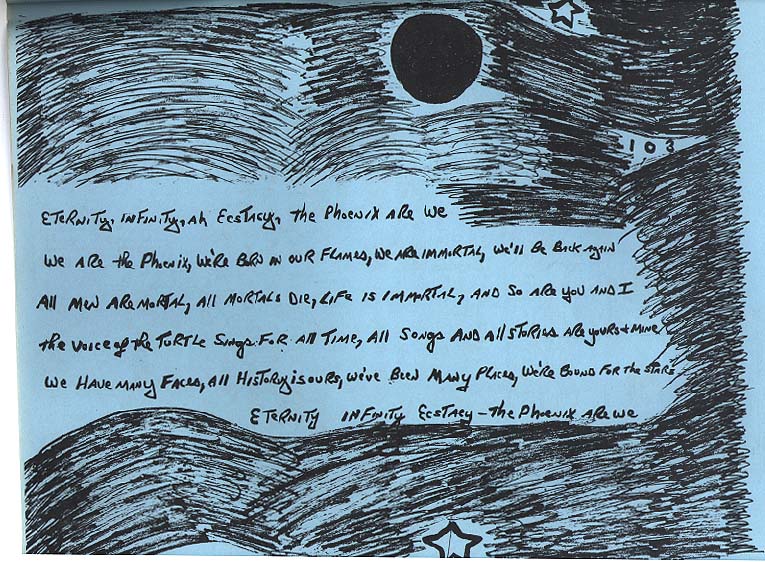 103
ETERNITY, INFINITY, AH ECSTACY, THE PHOENIX ARE WE
WE ARE THE PHOENIX, WE'RE BORN IN OUR FLAMES, WE ARE IMMORTAL, WE'LL BE BACK AGAIN
ALL MEN ARE MORTAL, ALL MORTALS DIE, LIFE IS IMMORTAL, AND SO ARE YOU AND I
THE VOICE OF THE TURTLE SINGS FOR ALL TIME, ALL SONGS AND ALL STORIES ARE YOURS + MINE
WE HAVE MANY FACES, ALL HISTORY IS OURS, WE'VE BEEN MANY PLACES, WE'RE BOUND FOR THE STARS
ETERNITY INFINITY ECSTACY - THE PHOENIX ARE WE